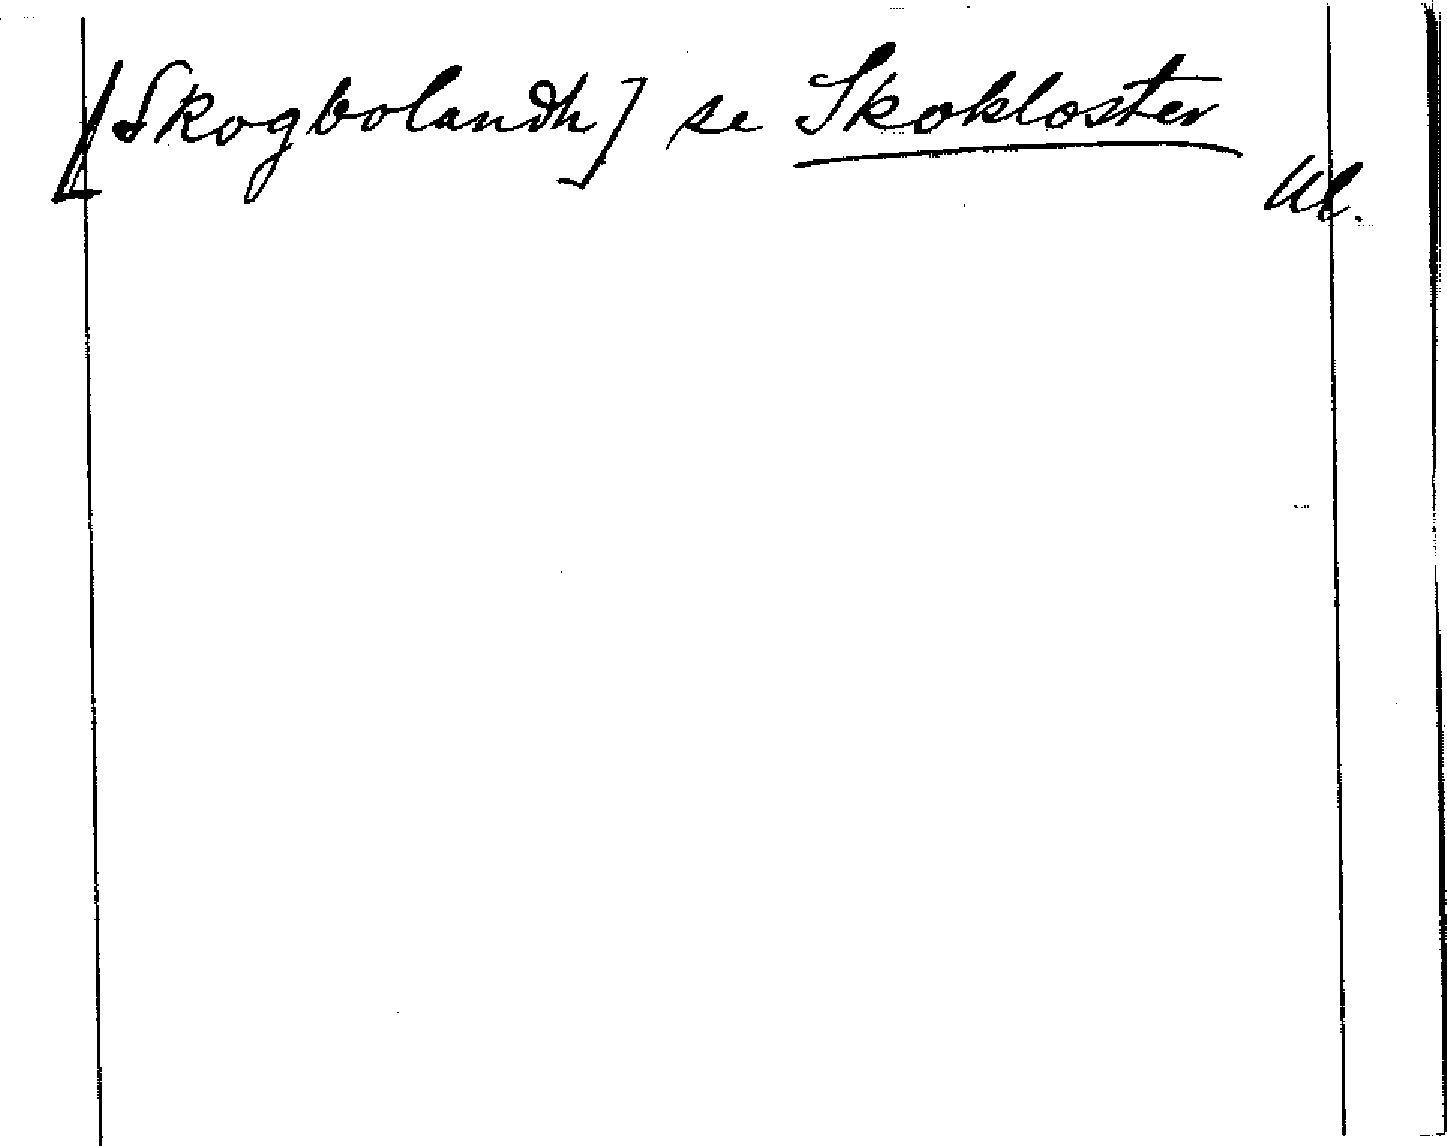 [Skogbolandh] se Skokloster
Ul.